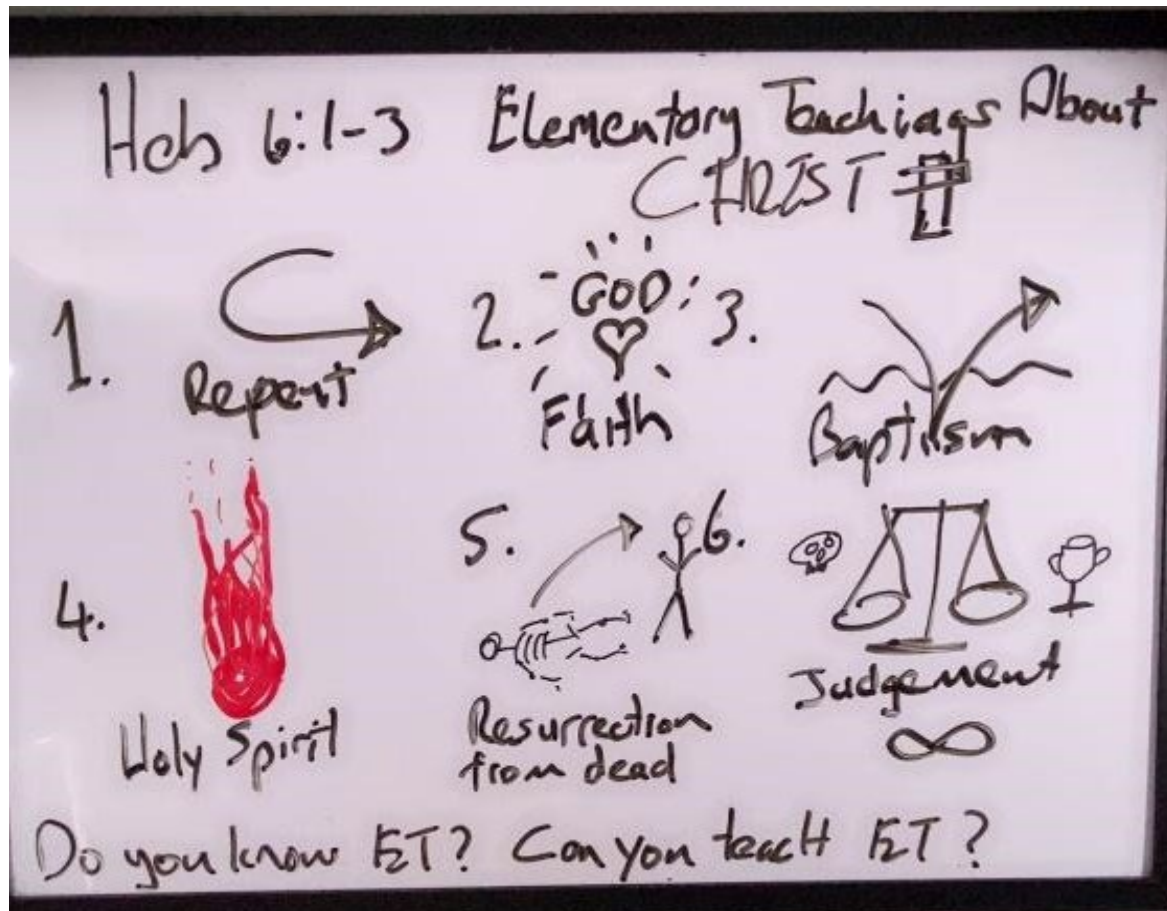 Heb 6:1-3 Elementary Teachings About
CHRIST
1. Repent
2. GOD
Faith
3. Baptism
4. Holy Spirit
5. Resurrection
from dead
6. Judgement
∞
Do you know ET? Can you teach ET?